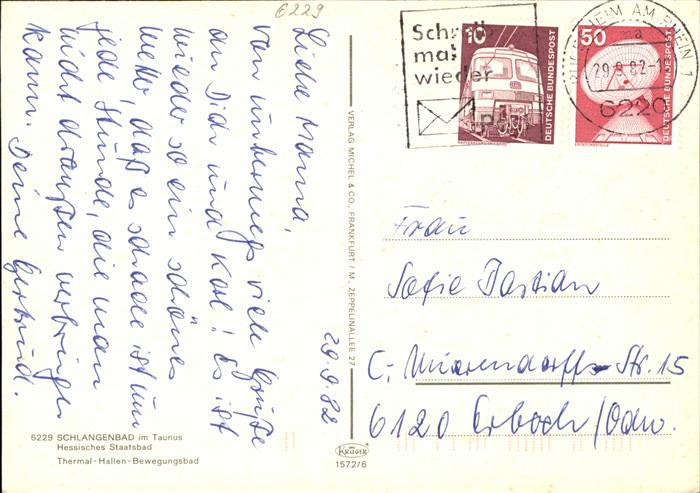 6229
Liebe Mama,
von unterwegs viele Grüße
an Dich und Karl! Es ist
wieder so ein schönes
Wetter, daß es schade ist um
jede Stunde, die man
nicht draußen verbringen
kann. Deine Gertrud.
29.9.82
VERLAG MICHEL & CO., FRANKFURT / M., ZEPPELINALLEE 27
6229 SCHLANGENBAD im Taunus
Hessisches Staatsbad
Thermal-Hallen-Bewegungsbad
KRÜGER
1572/6
Schreib
mal
wieder
Post
10
DEUTSCHE BUNDESPOST
50
DEUTSCHE BUNDESPOST
AM RHEIN 1
ma
29.9.82-
6220
Frau
Sofie Bastian
C.-Mierendorff-Str. 15
6120 Erbach/Odw.